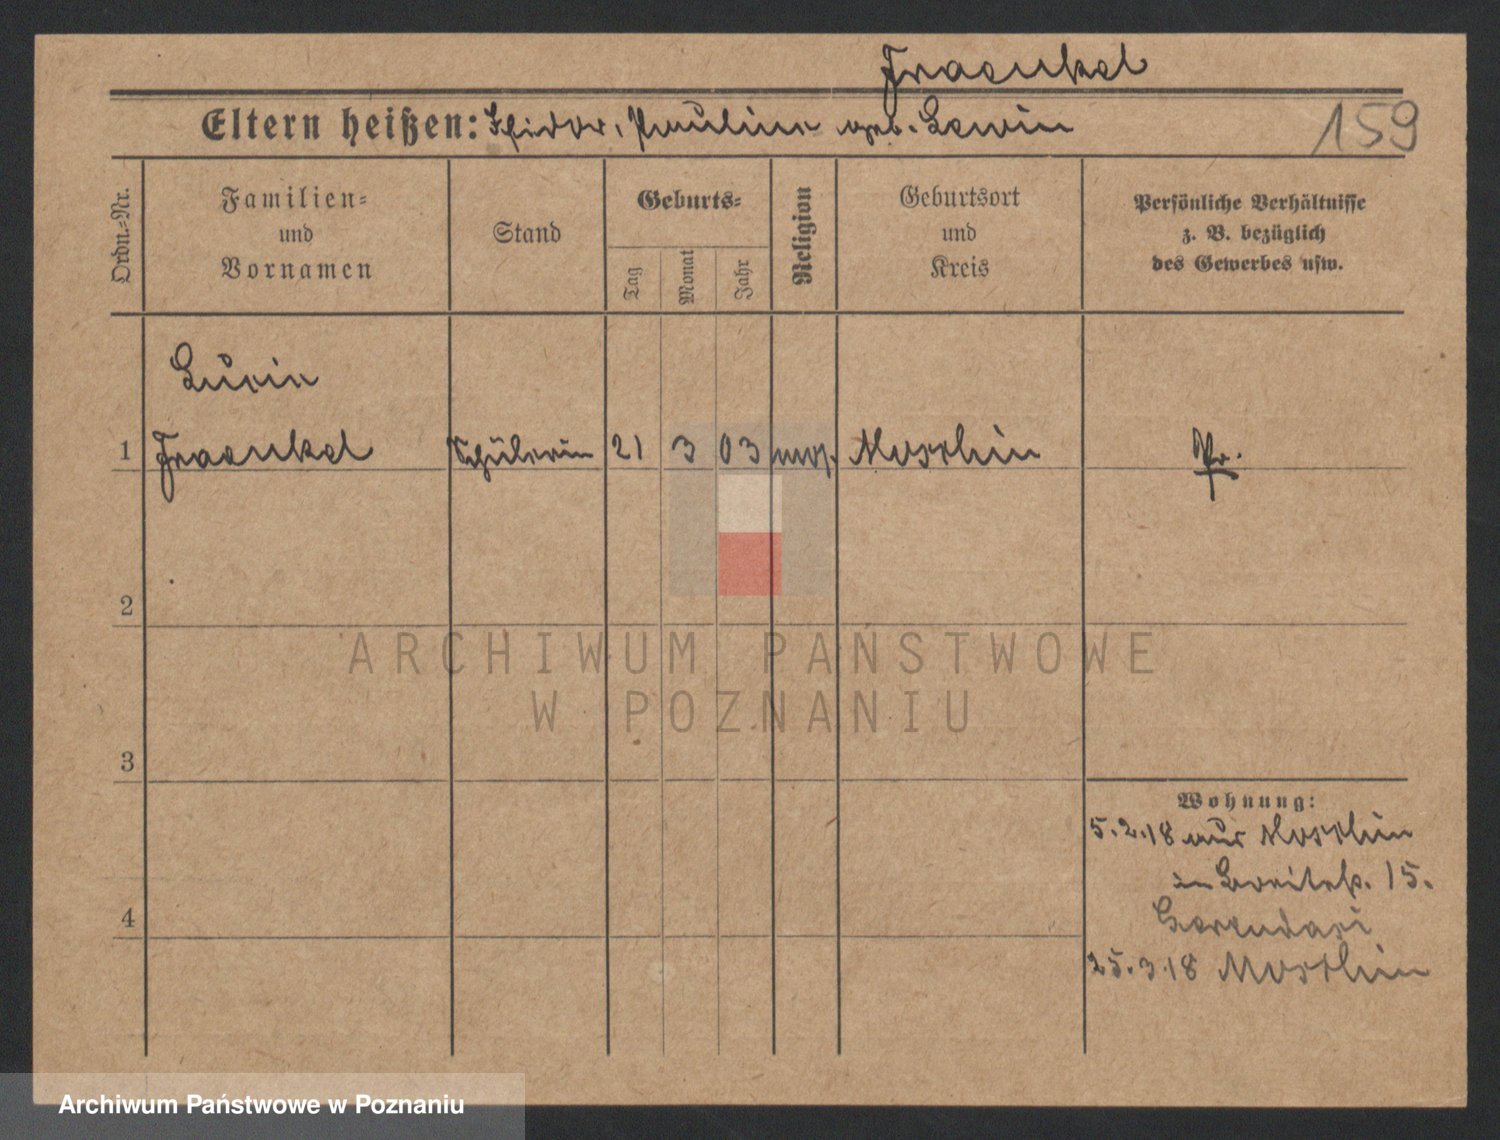 Fraenkel
Eltern heißen: Isidor, Pauline geb. Lewin
159
Ordn.-Nr.
Familien-
und
Vornamen
Stand
Geburts-
Tag
Monat
Jahr
Religion
Geburtsort
und
Kreis
Persönliche Verhältnisse
z. B. bezüglich
des Gewerbes usw.
1
Fraenkel
Schülerin
21
3
03
mos.
Moschin
Pr.
2
3
4
ARCHIWUM PAŃSTWOWE
W POZNANIU
Wohnung:
5.2.18 aus Moschin
Breitestr. 15.
25.3.18 Moschin
Archiwum Państwowe w Poznaniu